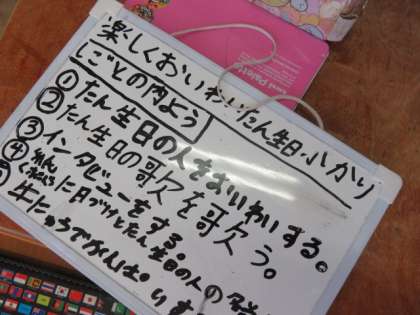 楽しくおいわいたん生日かかり
しごとの内よう
①たん生日の人をおいわいする。
②たん生日の歌を歌う。
③インタビューをする。
④に日づけとたん生日の人の
⑤牛にゅうでかんぱいす